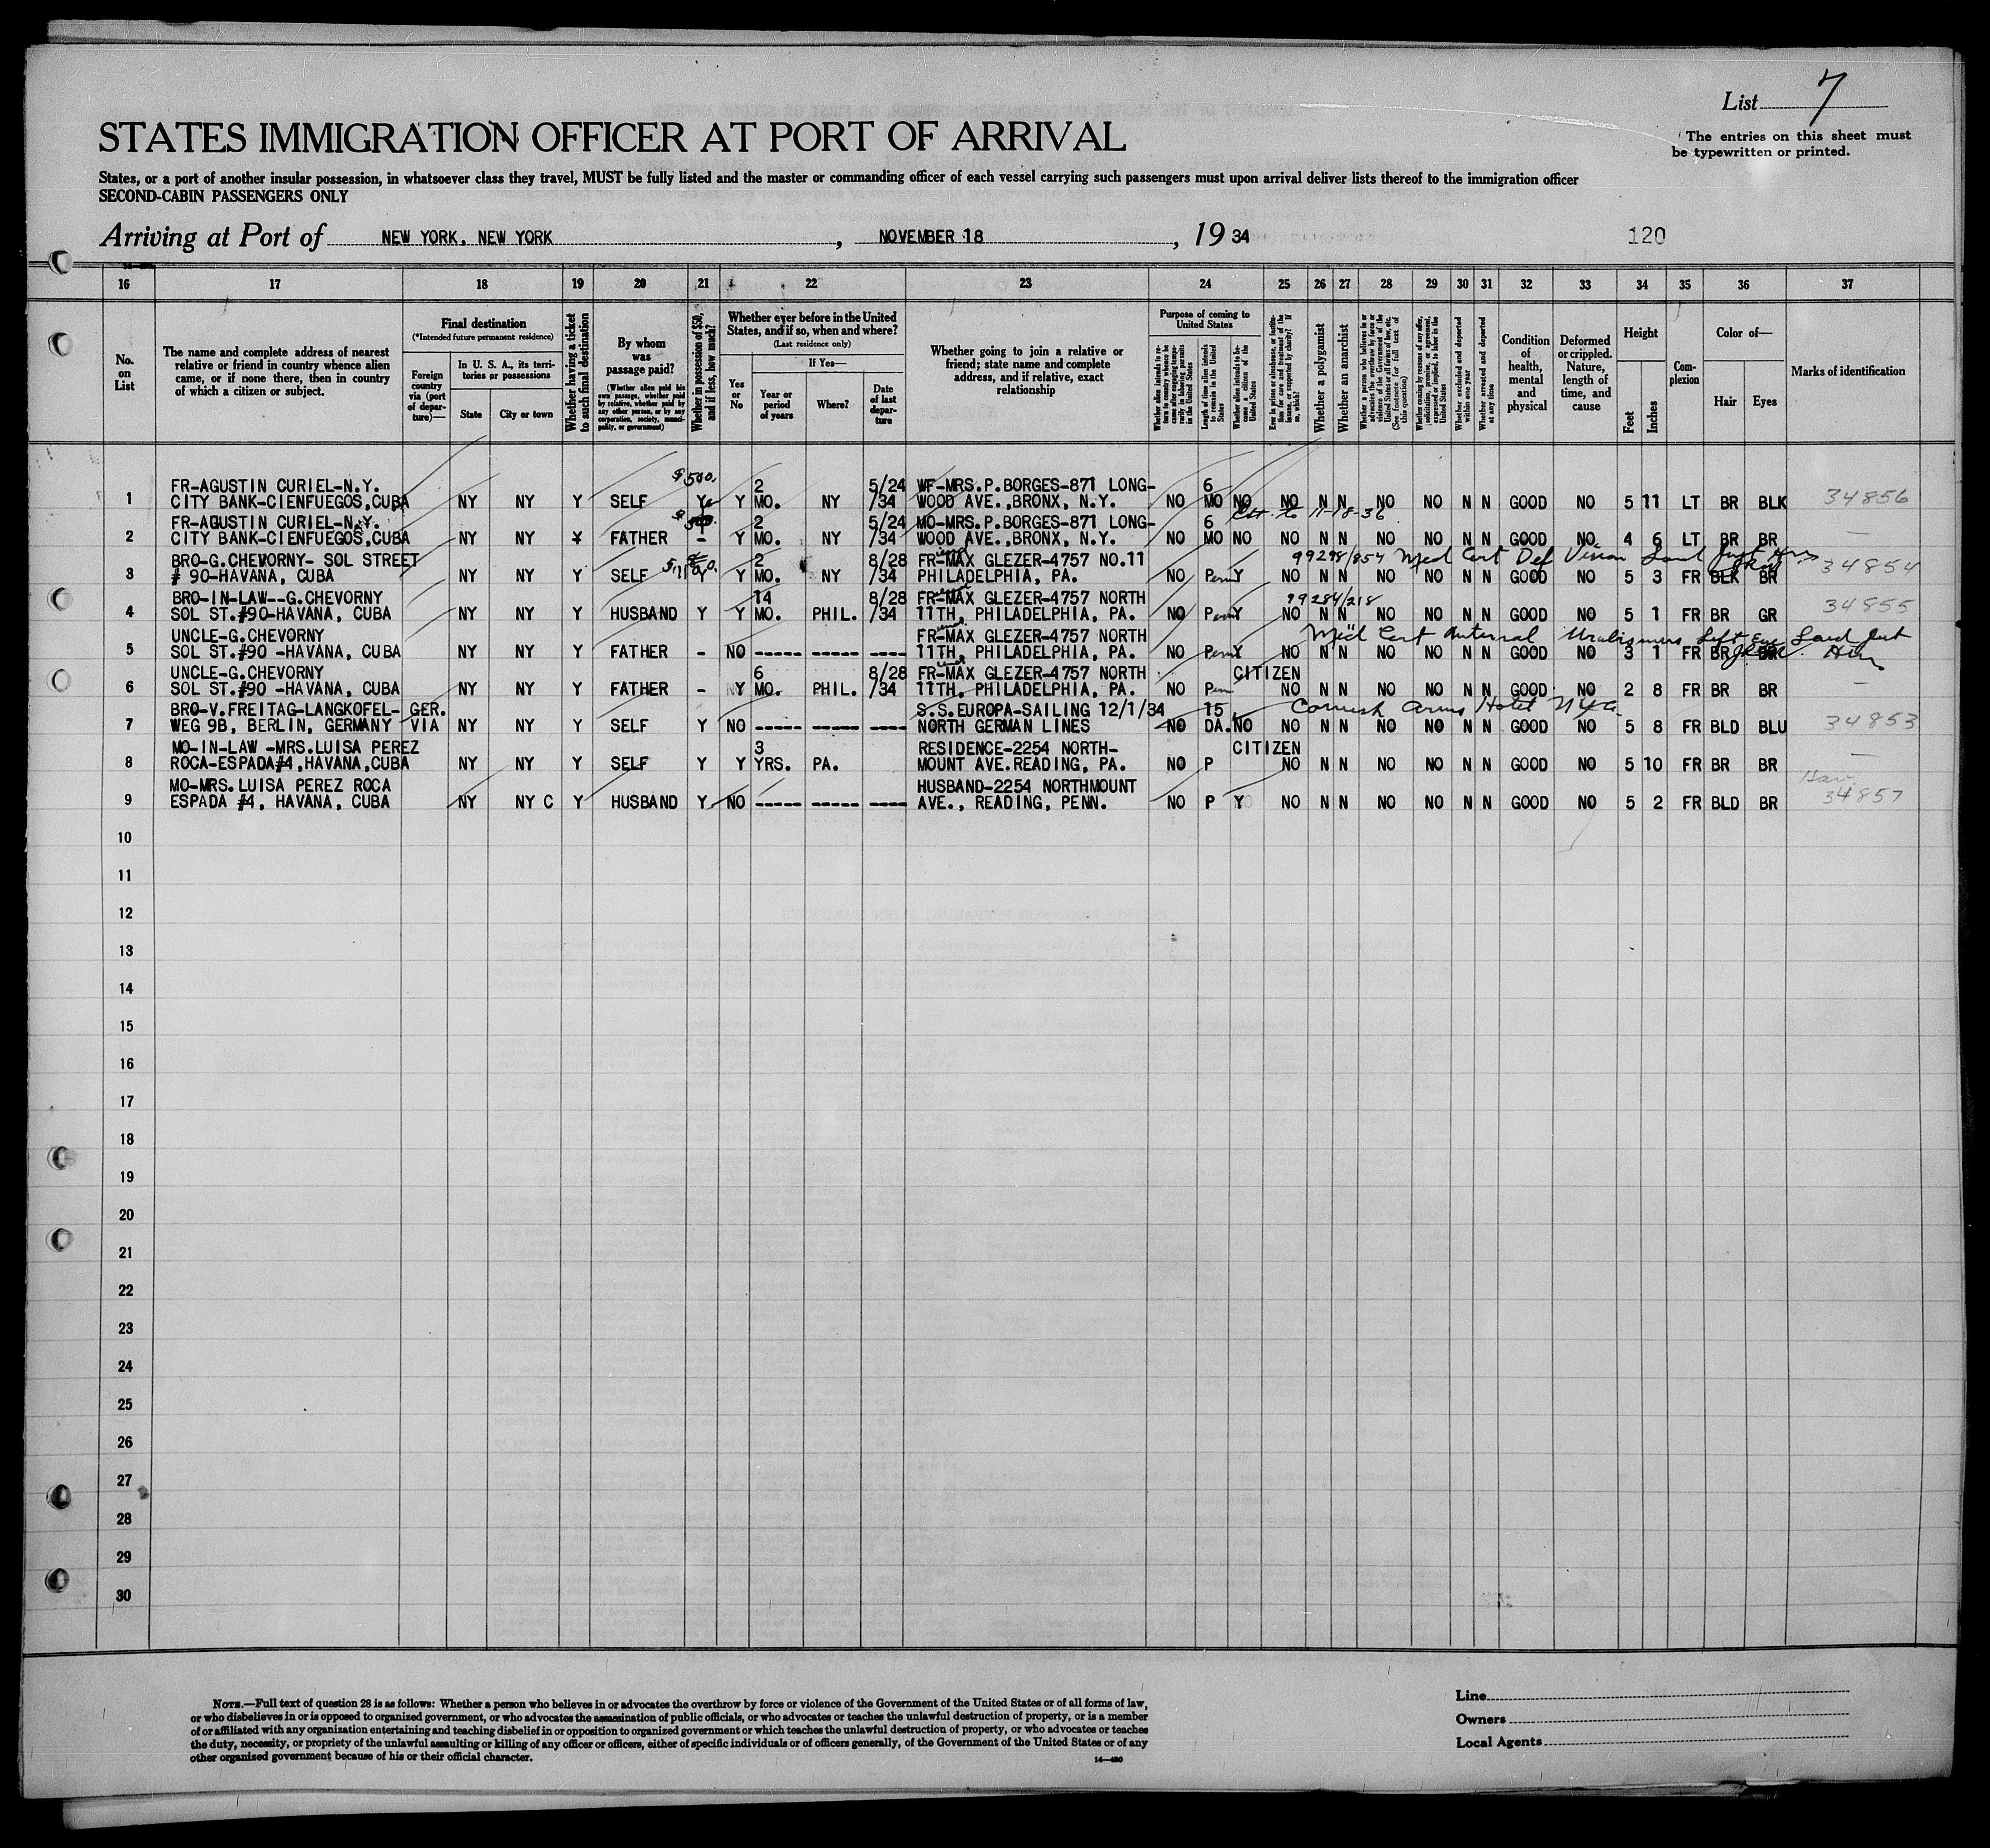 List 7
The entries on this sheet must
be typewritten or printed.
STATES IMMIGRATION OFFICER AT PORT OF ARRIVAL
States, or a port of another insular possession, in whatsoever class they travel, MUST be fully listed and the master or commanding officer of each vessel carrying such passengers must upon arrival deliver lists thereof to the immigration officer
SECOND-CABIN PASSENGERS ONLY
Arriving at Port of NEW YORK, NEW YORK, NOVEMBER 18, 19 34
120
16 17 18 19 20 21 22 23 24 25 26 27 28 29 30 31 32 33 34 35 36 37
No. on List
The name and complete address of nearest relative or friend in country whence alien came, or if none there, then in country of which a citizen or subject.
Final destination
(*Intended future permanent residence)
Foreign country via (port of departure)—
In U. S. A., its territories or possessions
State
City or town
Whether having a ticket to such final destination
By whom was passage paid?
(Whether alien paid his own passage, whether paid by relative, whether paid by any other person, or by any corporation, society, municipality, or government)
Whether in possession of $50, and if less, how much?
Whether ever before in the United States, and if so, when and where?
(Last residence only)
Yes or No
If Yes—
Year or period of years
Where?
Date of last departure
Whether going to join a relative or friend; state name and complete address, and if relative, exact relationship
Purpose of coming to United States
Length of time alien intends to remain in the United States
Whether alien intends to become a citizen of the United States
Whether a polygamist
Whether an anarchist
Whether excluded and deported within one year
Whether arrested and deported at any time
Condition of health, mental and physical
Deformed or crippled. Nature, length of time, and cause
Height
Feet
Inches
Complexion
Color of—
Hair
Eyes
Marks of identification
$500.
FR-AGUSTIN CURIEL-N.Y. 2 5/24 WF-MRS.P.BORGES-871 LONG- 6
1 CITY BANK-CIENFUEGOS,CUBA NY NY Y SELF Y Y MO. NY /34 WOOD AVE.,BRONX, N.Y. NO MO NO NO N N NO NO N N GOOD NO 5 11 LT BR BLK 34856
FR-AGUSTIN CURIEL-N.Y. 2 5/24 MO-MRS.P.BORGES-871 LONG- 6 11-18-36
2 CITY BANK-CIENFUEGOS,CUBA NY NY Y FATHER - Y MO. NY /34 WOOD AVE.,BRONX, N.Y. NO MO NO NO N N NO NO N N GOOD NO 4 6 LT BR BR —
BRO-G.CHEVORNY- SOL STREET 2 8/28 FR-MAX GLEZER-4757 NO.11 99298/854 Med Cert Def Vision
3 # 90-HAVANA, CUBA NY NY Y SELF Y Y MO. NY /34 PHILADELPHIA, PA. NO Perm Y NO N N NO NO N N GOOD NO 5 3 FR BLK BR 34854
BRO-IN-LAW--G.CHEVORNY 14 8/28 FR-MAX GLEZER-4757 NORTH 99284/218
4 SOL ST.#90-HAVANA, CUBA NY NY Y HUSBAND Y Y MO. PHIL. /34 11TH, PHILADELPHIA, PA. NO Perm Y NO N N NO NO N N GOOD NO 5 1 FR BR GR 34855
UNCLE-G.CHEVORNY FR-MAX GLEZER-4757 NORTH Med Cert Left Eye
5 SOL ST.#90 -HAVANA, CUBA NY NY Y FATHER - NO ----- ----- ---- 11TH, PHILADELPHIA, PA. NO Perm Y NO N N NO NO N N GOOD NO 3 1 FR BR BR
UNCLE-G.CHEVORNY 6 8/28 FR-MAX GLEZER-4757 NORTH CITIZEN
6 SOL ST.#90 -HAVANA, CUBA NY NY Y FATHER - Y MO. PHIL. /34 11TH, PHILADELPHIA, PA. NO Perm NO N N NO NO N N GOOD NO 2 8 FR BR BR —
BRO-V.FREITAG-LANGKOFEL- GER. S.S.EUROPA-SAILING 12/1/34 15 Cornish Arms Hotel NYC
7 WEG 9B, BERLIN, GERMANY VIA NY NY Y SELF Y NO ----- ----- ---- NORTH GERMAN LINES NO DA. NO NO N N NO NO N N GOOD NO 5 8 FR BLD BLU 34853
MO-IN-LAW -MRS.LUISA PEREZ 3 RESIDENCE-2254 NORTH- CITIZEN
8 ROCA-ESPADA#4,HAVANA,CUBA NY NY Y SELF Y Y YRS. PA. MOUNT AVE.READING, PA. NO P NO N N NO NO N N GOOD NO 5 10 FR BR BR —
MO-MRS. LUISA PEREZ ROCA HUSBAND-2254 NORTHMOUNT
9 ESPADA #4, HAVANA, CUBA NY NY C Y HUSBAND Y NO ----- ----- ---- AVE., READING, PENN. NO P Y NO N N NO NO N N GOOD NO 5 2 FR BLD BR 34857
10
11
12
13
14
15
16
17
18
19
20
21
22
23
24
25
26
27
28
29
30
NOTE.—Full text of question 28 is as follows: Whether a person who believes in or advocates the overthrow by force or violence of the Government of the United States or of all forms of law,
or who disbelieves in or is opposed to organized government, or who advocates the assassination of public officials, or who advocates or teaches the unlawful destruction of property, or is a member
of or affiliated with any organization entertaining and teaching disbelief in or opposition to organized government or which teaches the unlawful destruction of property, or who advocates or teaches
the duty, necessity, or propriety of the unlawful assaulting or killing of any officer or officers, either of specific individuals or of officers generally, of the Government of the United States or of any
other organized government because of his or their official character.
14—430
Line
Owners
Local Agents